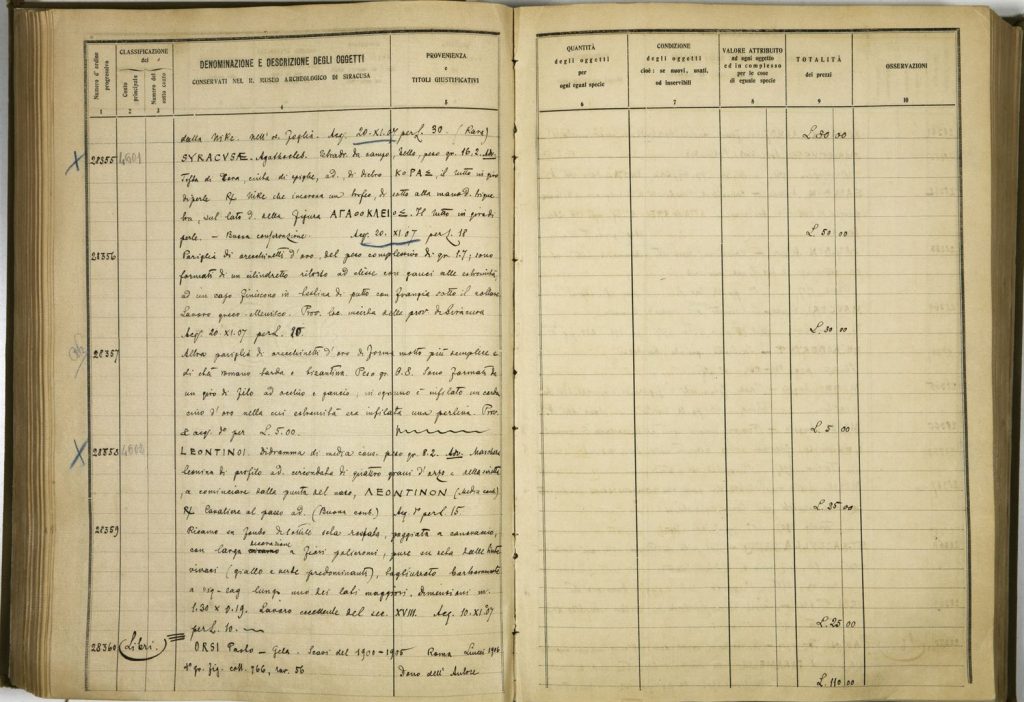 Numero d'ordine progressivo
CLASSIFICAZIONE del
Conto principale
Numero del sotto conto
DENOMINAZIONE E DESCRIZIONE DEGLI OGGETTI
CONSERVATI NEL R. MUSEO ARCHEOLOGICO DI SIRACUSA
PROVENIENZA
e
TITOLI GIUSTIFICATIVI
1 2 3 4 5
dalla Nike. nell' es. Acq. 20-XI.07 per L. 30. (Rara)
28355 4601 SYRACVSÆ. Agathocles. Tetradr. da campo, bello, peso gr. 16.2. Adr.
Testa di Cora, cinta di spighe, ad. di dietro ΚΟΡΑΣ, il tutto in giro
di perle. R/ Nike che incorona un trofeo, di sotto alla mano d. trique
tra, sul lato d. della figura ΑΓΑΘΟΚΛΕΙΟΣ. Il tutto in giro di
perle. - Buona conservazione. Acq. 20. XI.07 per L. 18
28356 Pariglia di orecchinetti d'oro, del peso complessivo di gr. 1.7; sono
formati di un cilindretto ritorto ad elisse con ganci alle estremità
ad un capo finiscono in testina di putto con frangia sotto il collare
Lavoro greco-ellenistico. Prov. loc. incerta della prov. di Siracusa
Acq. 20.XI.07 per L. 20
28357 Altra pariglia di orecchinetti d'oro di forma molto più semplice e
di età romano tarda o bizantina. Peso gr. 0.8. Sono formati da
un giro di filo ad occhio e gancio; in ognuno è infilato un
d'oro nella cui estremità era infilata una perlina. Prov.
e acq. d° per L. 5.00.
28358 4602 LEONTINOI. Didramma di media cons. peso gr. 8.2. Adr. Maschera
leonina di profilo ad. circondata di quattro grani d'orzo e della scritta
, a cominciare dalla punta del naso, ΛΕΟΝΤΙΝΟΝ (Media cons.)
R/ Cavaliere al passo ad. (Buona cons.) Acq. d° per L. 15
28359 Ricamo su fondo di sottile tela
con larga decorazione a fiori policromi, pure su seta dalle tinte
vivaci (giallo e verde predominanti),
a zig-zag lungo uno dei lati maggiori. Dimensioni m.
1.30 x 0.19. Lavoro eccellente del sec. XVIII. Acq. 10.XI.07
per L. 10.
28360 (Libri.) ORSI Paolo - Gela. Scavi del 1900-1905 Roma Lincei 1906
4° gr. fig. coll. 766, tav. 56 Dono dell' Autore
QUANTITÀ
degli oggetti
per
ogni egual specie
CONDIZIONE
degli oggetti
cioè: se nuovi, usati,
od inservibili
VALORE ATTRIBUITO
ad ogni oggetto
ed in complesso
per le cose
di eguale specie
TOTALITÀ
dei prezzi
OSSERVAZIONI
6 7 8 9 10
L. 80 00
L. 50 00
L. 30 00
L. 5 00
L. 25 00
L. 25 00
L. 110 00